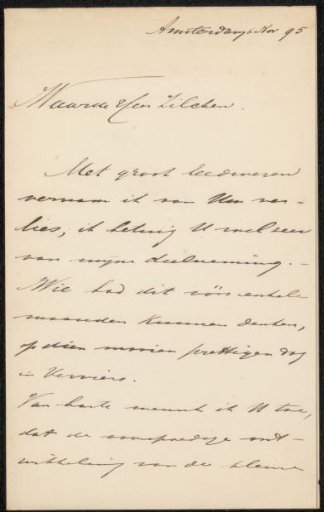 Amsterdam Nov 95
Waarde Heer Zilcken.
Met groot leedwezen
vernam ik van Uw ver-
lies; ik betuig U wel zeer
van mijn deelneming. -
Wie had dit vóór enkele
maanden kunnen denken,
op dien mooien prettigen dag
in Verviers.
Van harte wensch ik U toe,
dat de voorspoedige ont-
wikkeling van de kleine